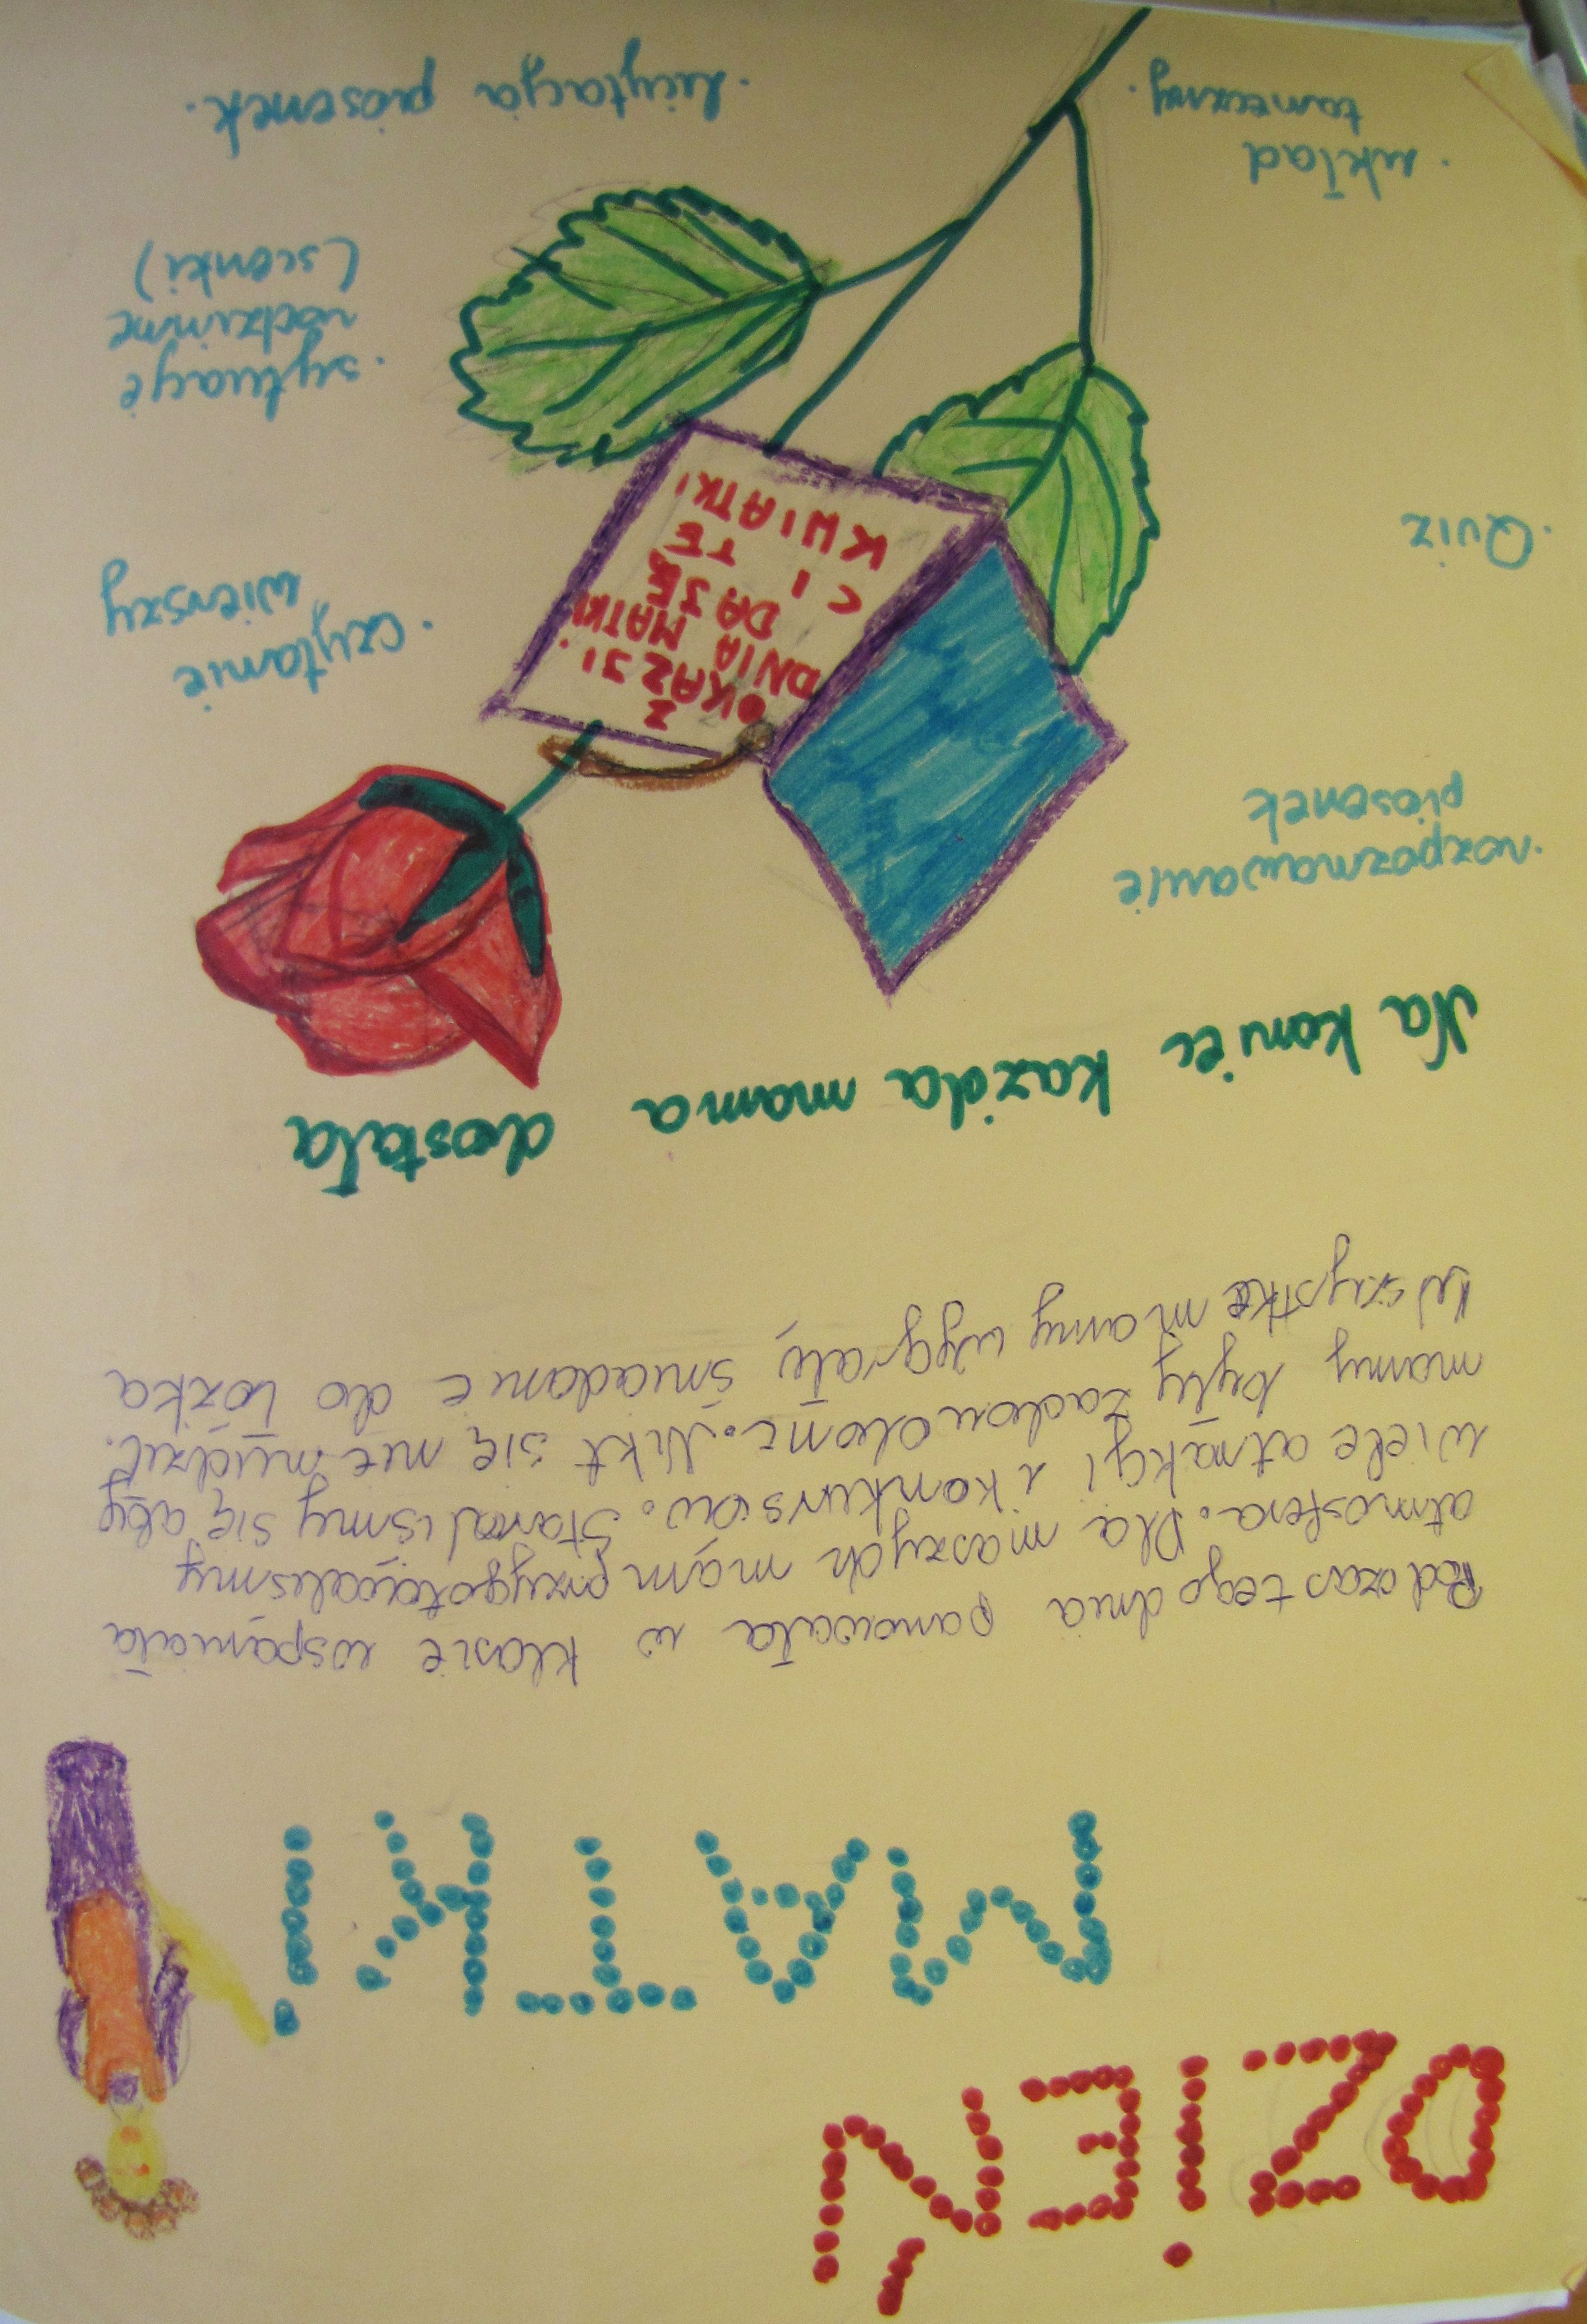 DZIEŃ
MATKI
Podczas tego dnia panowała w klasie wspaniała
atmosfera. Dla naszych mam przygotowaliśmy
wiele atrakcji i konkursów. Staraliśmy się aby
mamy były zadowolone. Nikt się nie nudził.
Wszystkie mamy wygrały śniadanie do łóżka
Na koniec każda mama dostała
• rozpoznawanie
piosenek
• Quiz
• układ
taneczny.
Z
OKAZJI
DNIA MATKI
DAJĘ
CI TE
KWIATKI
• czytanie
wierszy
• sytuacje
rodzinne
(scenki)
• licytacja piosenek.